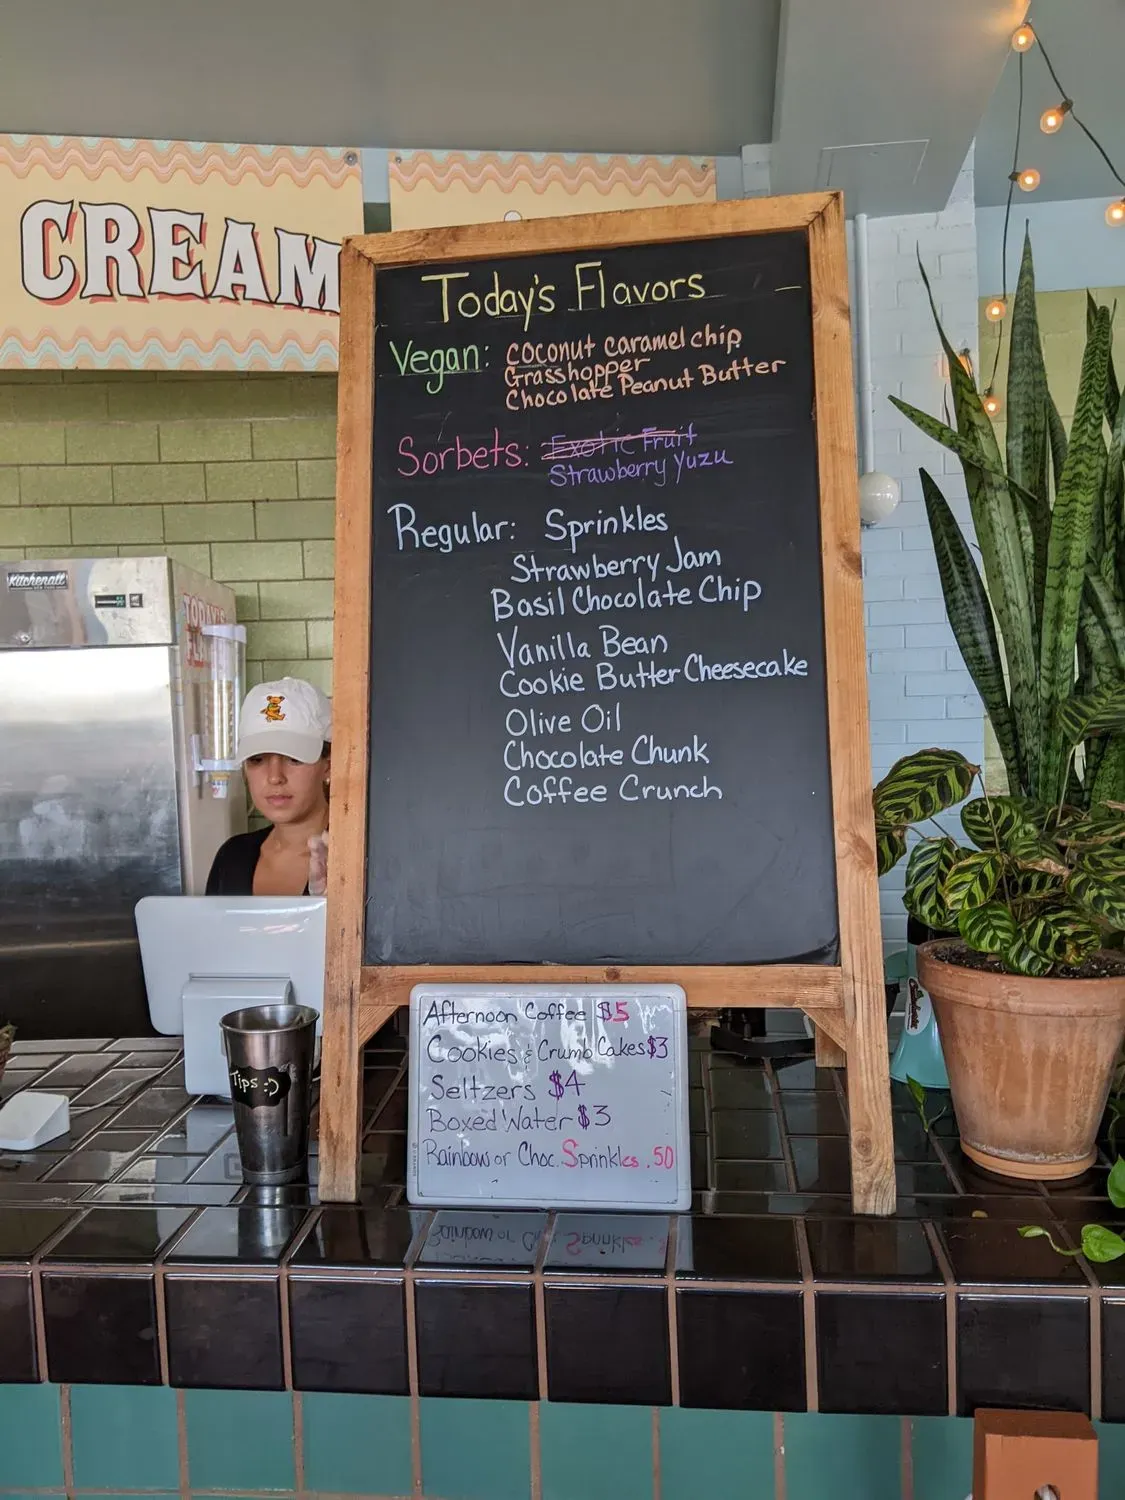 CREAM
Today's Flavors
Vegan: coconut caramel chip
Grasshopper
Chocolate Peanut Butter
Sorbets: Exotic Fruit
Strawberry Yuzu
Regular: Sprinkles
Strawberry Jam
Basil Chocolate Chip
Vanilla Bean
Cookie Butter Cheesecake
Olive Oil
Chocolate Chunk
Coffee Crunch
Kitchenall
TODAY'S
Tips :)
Afternoon Coffee $5
Cookies & Crumb Cakes $3
Seltzers $4
Boxed Water $3
Rainbow or Choc. Sprinkles .50